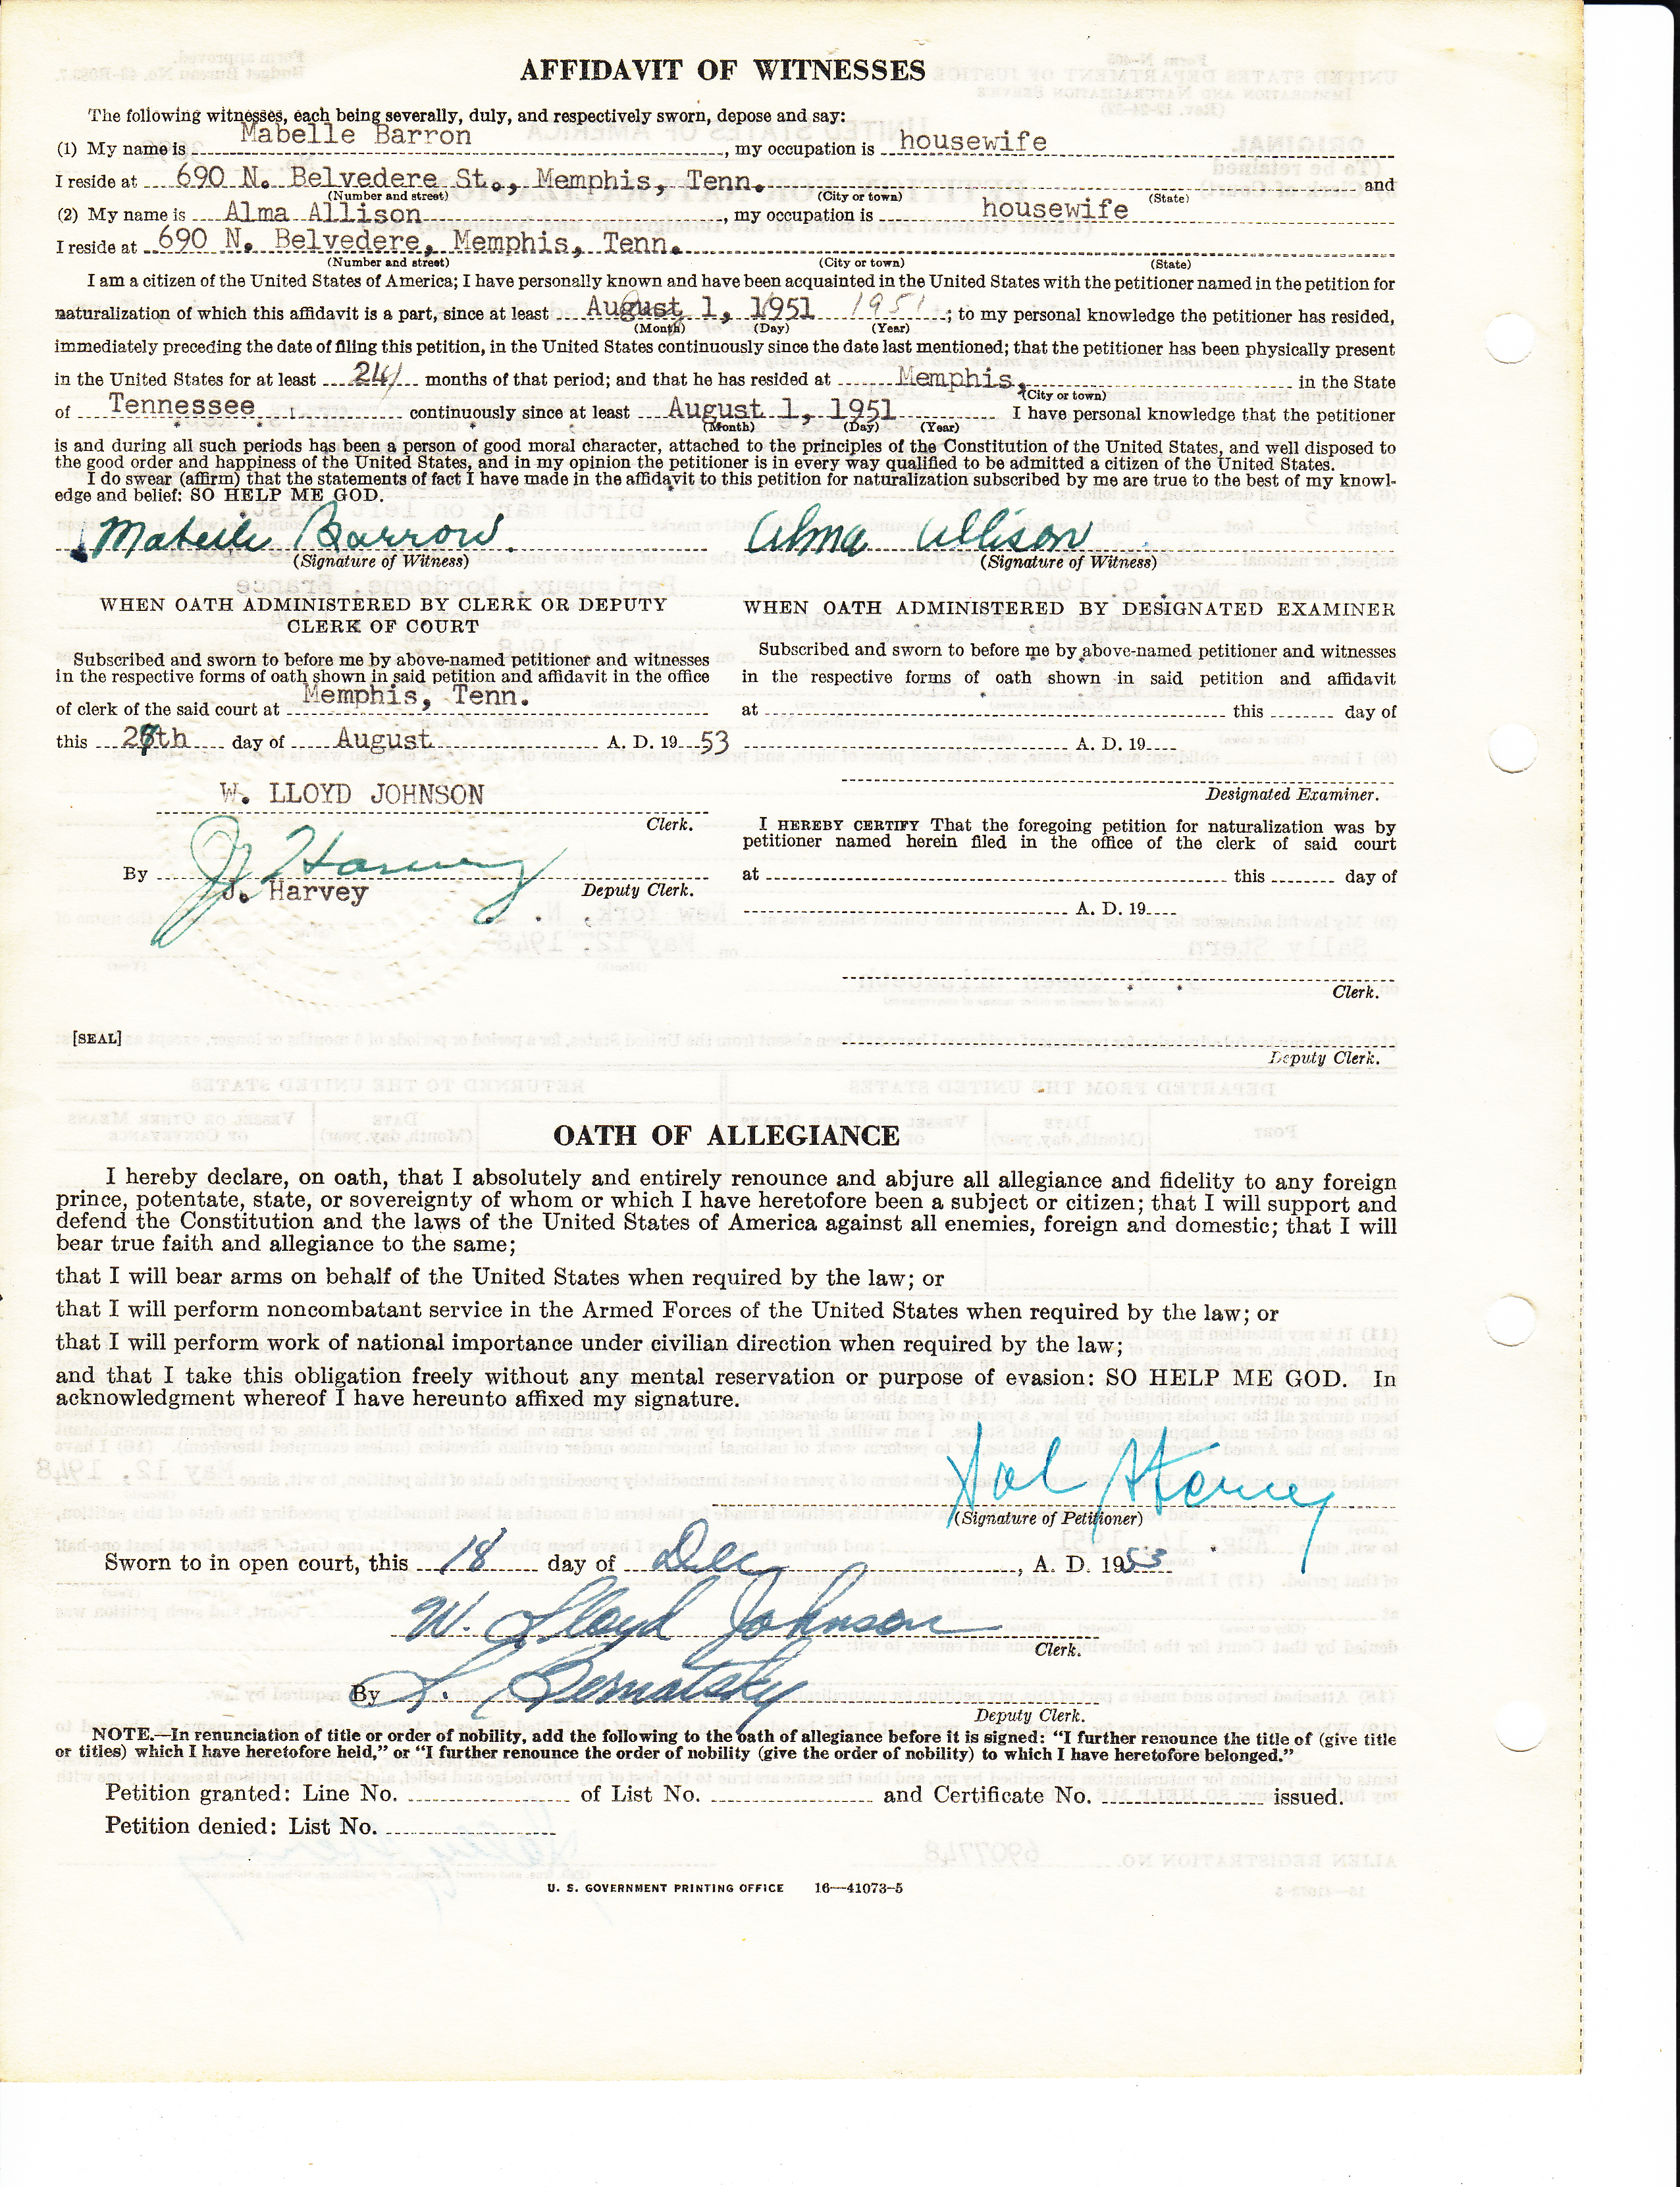 AFFIDAVIT OF WITNESSES
The following witnesses, each being severally, duly, and respectively sworn, depose and say:
(1) My name is Mabelle Barron, my occupation is housewife
I reside at 690 N. Belvedere St., Memphis, Tenn. and
(Number and street) (City or town) (State)
(2) My name is Alma Allison, my occupation is housewife
I reside at 690 N. Belvedere, Memphis, Tenn.
(Number and street) (City or town) (State)
I am a citizen of the United States of America; I have personally known and have been acquainted in the United States with the petitioner named in the petition for
naturalization of which this affidavit is a part, since at least August 1, 1951 1951; to my personal knowledge the petitioner has resided,
(Month) (Day) (Year)
immediately preceding the date of filing this petition, in the United States continuously since the date last mentioned; that the petitioner has been physically present
in the United States for at least 24 months of that period; and that he has resided at Memphis, in the State
(City or town)
of Tennessee continuously since at least August 1, 1951 I have personal knowledge that the petitioner
(Month) (Day) (Year)
is and during all such periods has been a person of good moral character, attached to the principles of the Constitution of the United States, and well disposed to
the good order and happiness of the United States, and in my opinion the petitioner is in every way qualified to be admitted a citizen of the United States.
I do swear (affirm) that the statements of fact I have made in the affidavit to this petition for naturalization subscribed by me are true to the best of my knowl-
edge and belief: SO HELP ME GOD.
Mabelle Barron Alma Allison
(Signature of Witness) (Signature of Witness)
WHEN OATH ADMINISTERED BY CLERK OR DEPUTY
CLERK OF COURT
Subscribed and sworn to before me by above-named petitioner and witnesses
in the respective forms of oath shown in said petition and affidavit in the office
of clerk of the said court at Memphis, Tenn.
this 27th day of August A. D. 19 53
W. LLOYD JOHNSON
Clerk.
By J. Harvey
J. Harvey Deputy Clerk.
[SEAL]
WHEN OATH ADMINISTERED BY DESIGNATED EXAMINER
Subscribed and sworn to before me by above-named petitioner and witnesses
in the respective forms of oath shown in said petition and affidavit
at this day of
A. D. 19
Designated Examiner.
I HEREBY CERTIFY That the foregoing petition for naturalization was by
petitioner named herein filed in the office of the clerk of said court
at this day of
A. D. 19
Clerk.
Deputy Clerk.
OATH OF ALLEGIANCE
I hereby declare, on oath, that I absolutely and entirely renounce and abjure all allegiance and fidelity to any foreign
prince, potentate, state, or sovereignty of whom or which I have heretofore been a subject or citizen; that I will support and
defend the Constitution and the laws of the United States of America against all enemies, foreign and domestic; that I will
bear true faith and allegiance to the same;
that I will bear arms on behalf of the United States when required by the law; or
that I will perform noncombatant service in the Armed Forces of the United States when required by the law; or
that I will perform work of national importance under civilian direction when required by the law;
and that I take this obligation freely without any mental reservation or purpose of evasion: SO HELP ME GOD. In
acknowledgment whereof I have hereunto affixed my signature.
(Signature of Petitioner)
Sworn to in open court, this 18 day of Dec, A. D. 1953
W. Lloyd Johnson
Clerk.
By
Deputy Clerk.
NOTE.—In renunciation of title or order of nobility, add the following to the oath of allegiance before it is signed: “I further renounce the title of (give title
or titles) which I have heretofore held,” or “I further renounce the order of nobility (give the order of nobility) to which I have heretofore belonged.”
Petition granted: Line No. of List No. and Certificate No. issued.
Petition denied: List No.
U. S. GOVERNMENT PRINTING OFFICE 16—41073-5